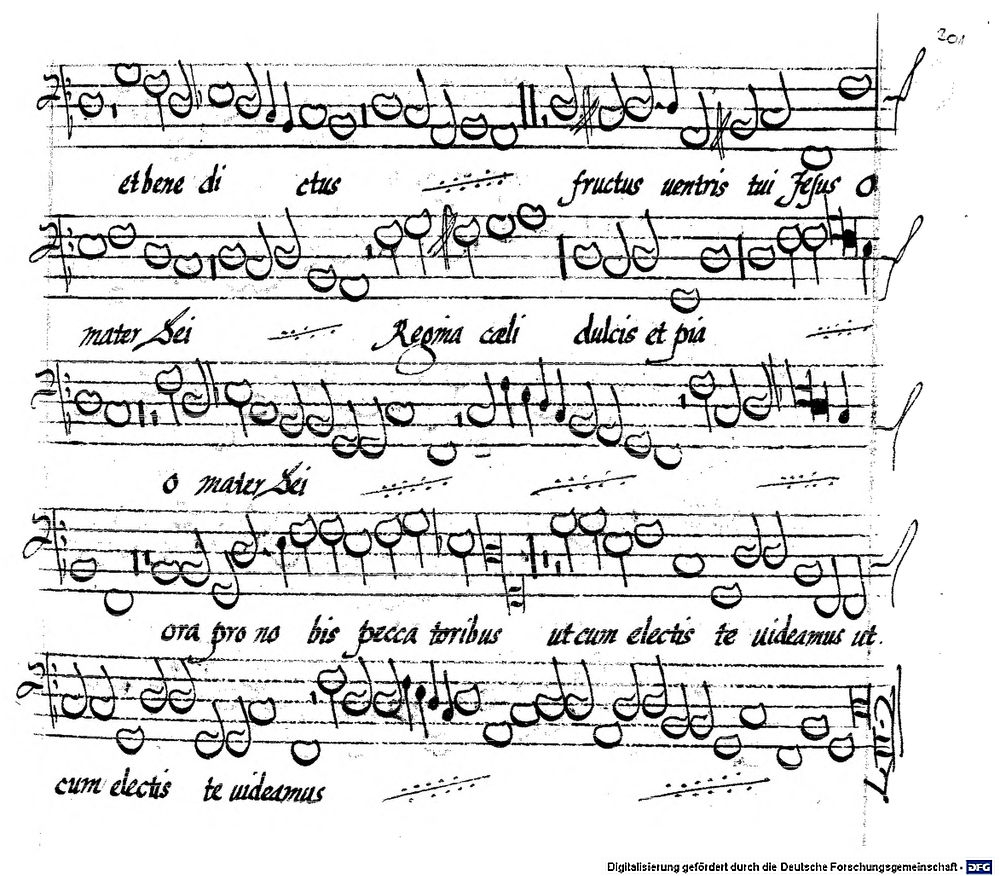 201
et bene di ctus fructus uentris tui Jesus O
mater Dei Regina cæli dulcis et pia
o mater Dei
ora pro no bis pecca toribus ut cum electis te uideamus ut
cum electis te uideamus
Digitalisierung gefördert durch die Deutsche Forschungsgemeinschaft - DFG